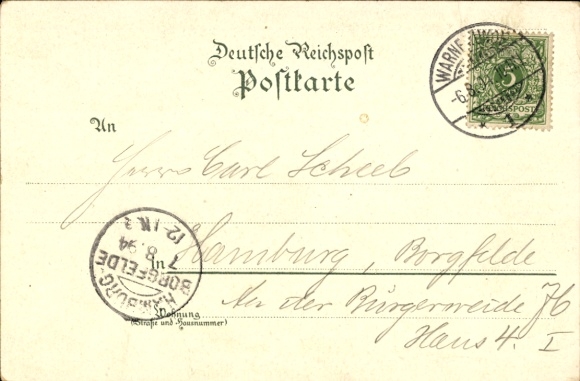 Deutsche Reichspost
Postkarte
WARNEMÜNDE
-6.8.
1
5
REICHSPOST
An
Herrn Carl Scheel
In Hamburg, Borgfelde
An der Bürgerweide 76
Haus 4. I
Wohnung
(Straße und Hausnummer)
HAMBURG-
BORGFELDE
7 8.94
12-1N.